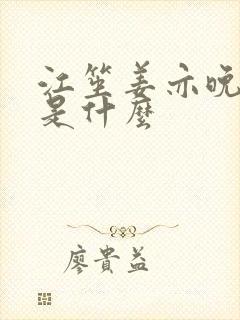 江笙姜亦晚
是什麼
廖貴益